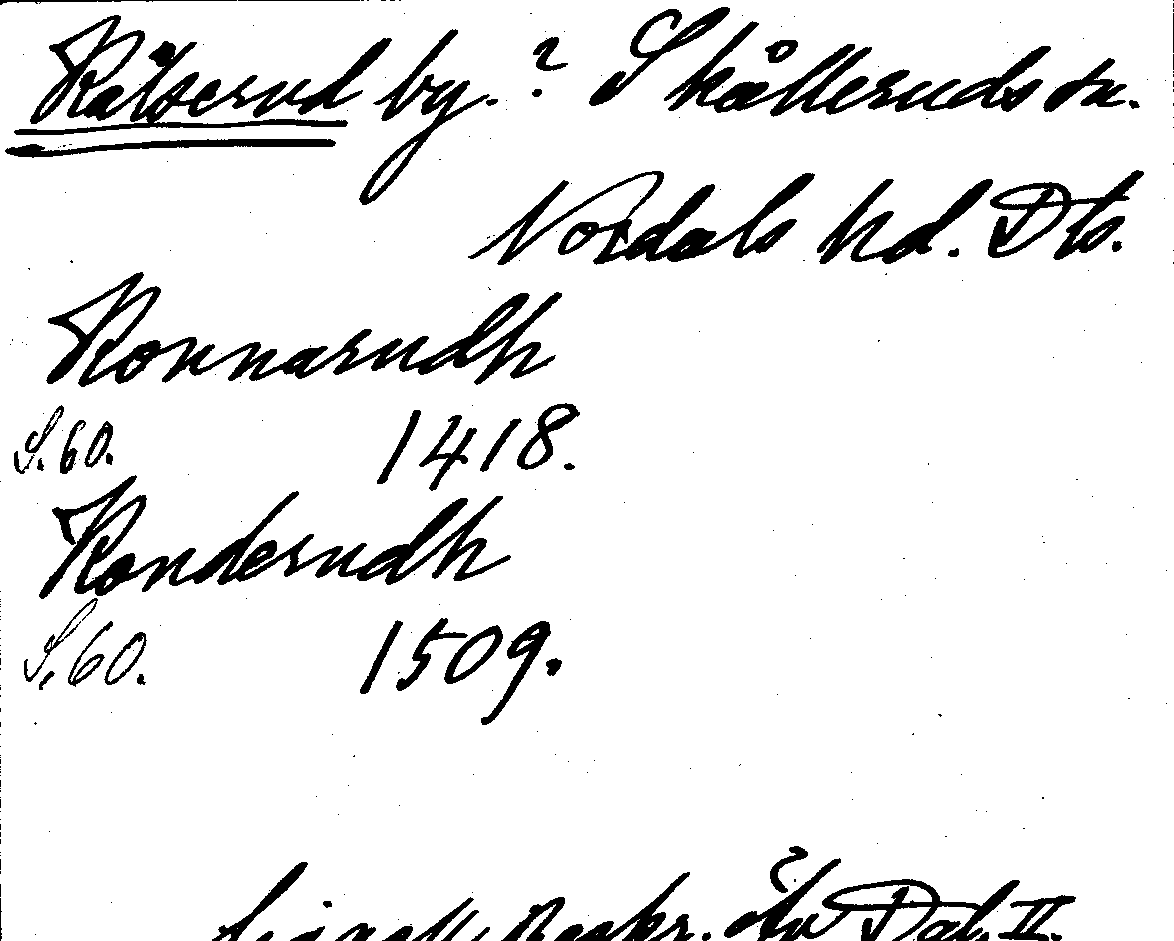 Rälserud by. ? Skålleruds sn.
Nordals hd. Dls.
Ronnarudh
S. 60. 1418.
Ronderudh
S. 60. 1509.
Lignell, Beskr. öfv. Dal. II.